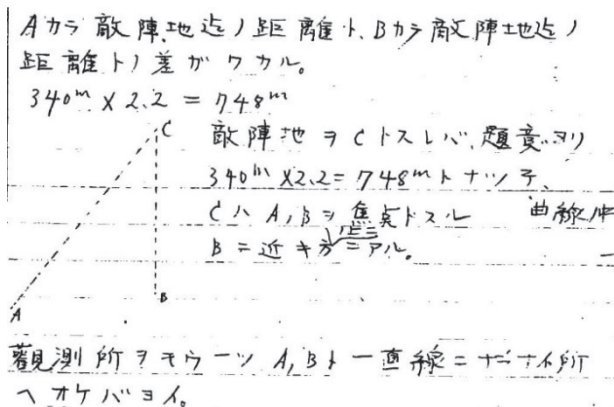 Aカラ敵陣地迄ノ距離ト、Bカラ敵陣地迄ノ
距離トノ差ガワカル。
340m × 2.2 = 748m
C
敵陣地ヲCトスレバ、題意ヨリ
340m ×2.2= 748mトナッテ、
CハA,Bヲ焦点トスル 曲線ノ
B=近キ方ニアル。
上ニ
B
A
観測所ヲモウ一ツA,Bト一直線ニナラナイ所
ヘオケバヨイ。